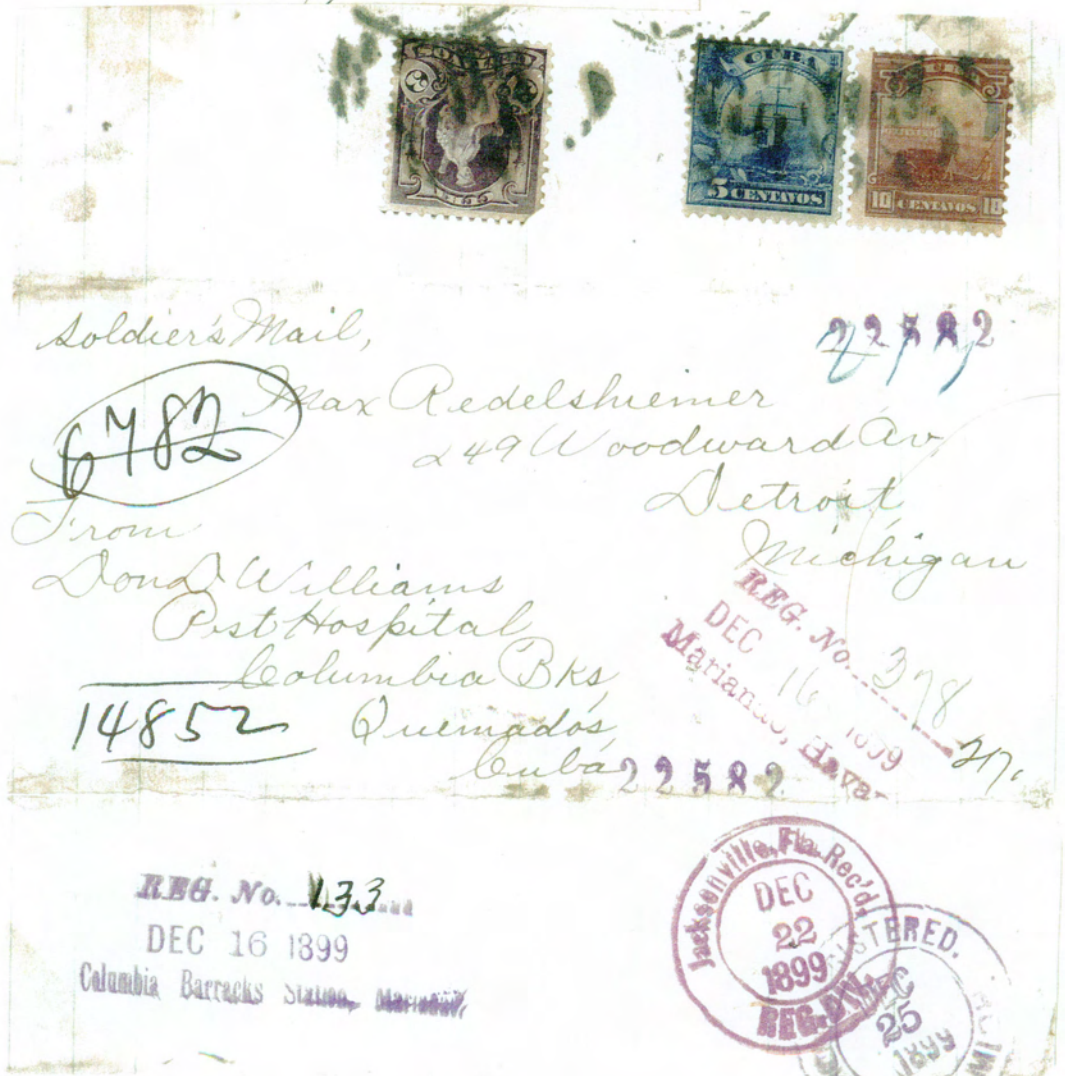 CUBA
5 CENTAVOS
10 CENTAVOS 10
Soldier's Mail,
22582
Max Redelshiemer
249 Woodward Av
Detroit,
Michigan
6782
From
Don D Williams
Post Hospital
Columbia Bks,
Quemados,
Cuba
14852
22582
REG. No. 378
DEC 16 1899
Marianao, Hava
REG. No. 133
DEC 16 1899
Columbia Barracks Station, Marianao
Jacksonville, Fla. Rec'd.
DEC
22
1899
REG. DIV.
REGISTERED.
DEC
25
1899